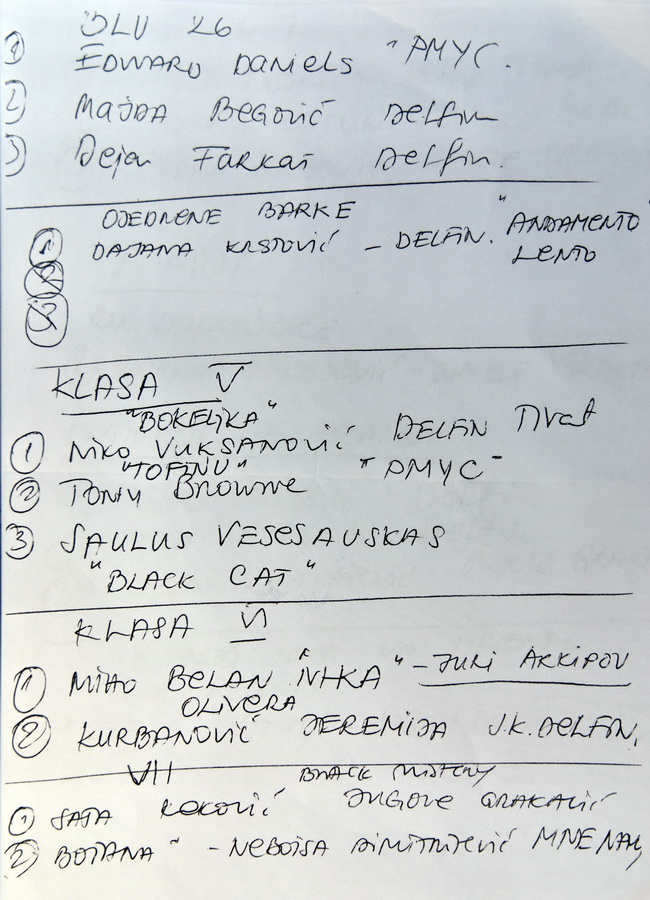 26
① EDWARD DANIELS "PMYC.
② MAJDA BEGOVIĆ DELFIN
③ Dejan FARKAŠ DELFIN.
OJEDRENE BARKE
① DAJANA KRSTOVIĆ – DELFIN. "ANDAMENTO
LENTO
②
③
KLASA V
"BOKELJKA"
① NIKO VUKSANOVIĆ DELFIN TIVAT
"TOFINU"
② TONY BROWNE "PMYC"
③ SAULUS VESESAUSKAS
"BLACK CAT"
KLASA VI
① MIHO BELAN "– JURI ARKIPOV
OLIVERA
② KURBANOVIĆ JEREMIJA J.K. DELFIN,
VII
BLACK MISTERY
① SAŠA ĐUGOVE GRAKALIĆ
② BOJANA" – NEBOJSA DIMITRIJEVIĆ MNE